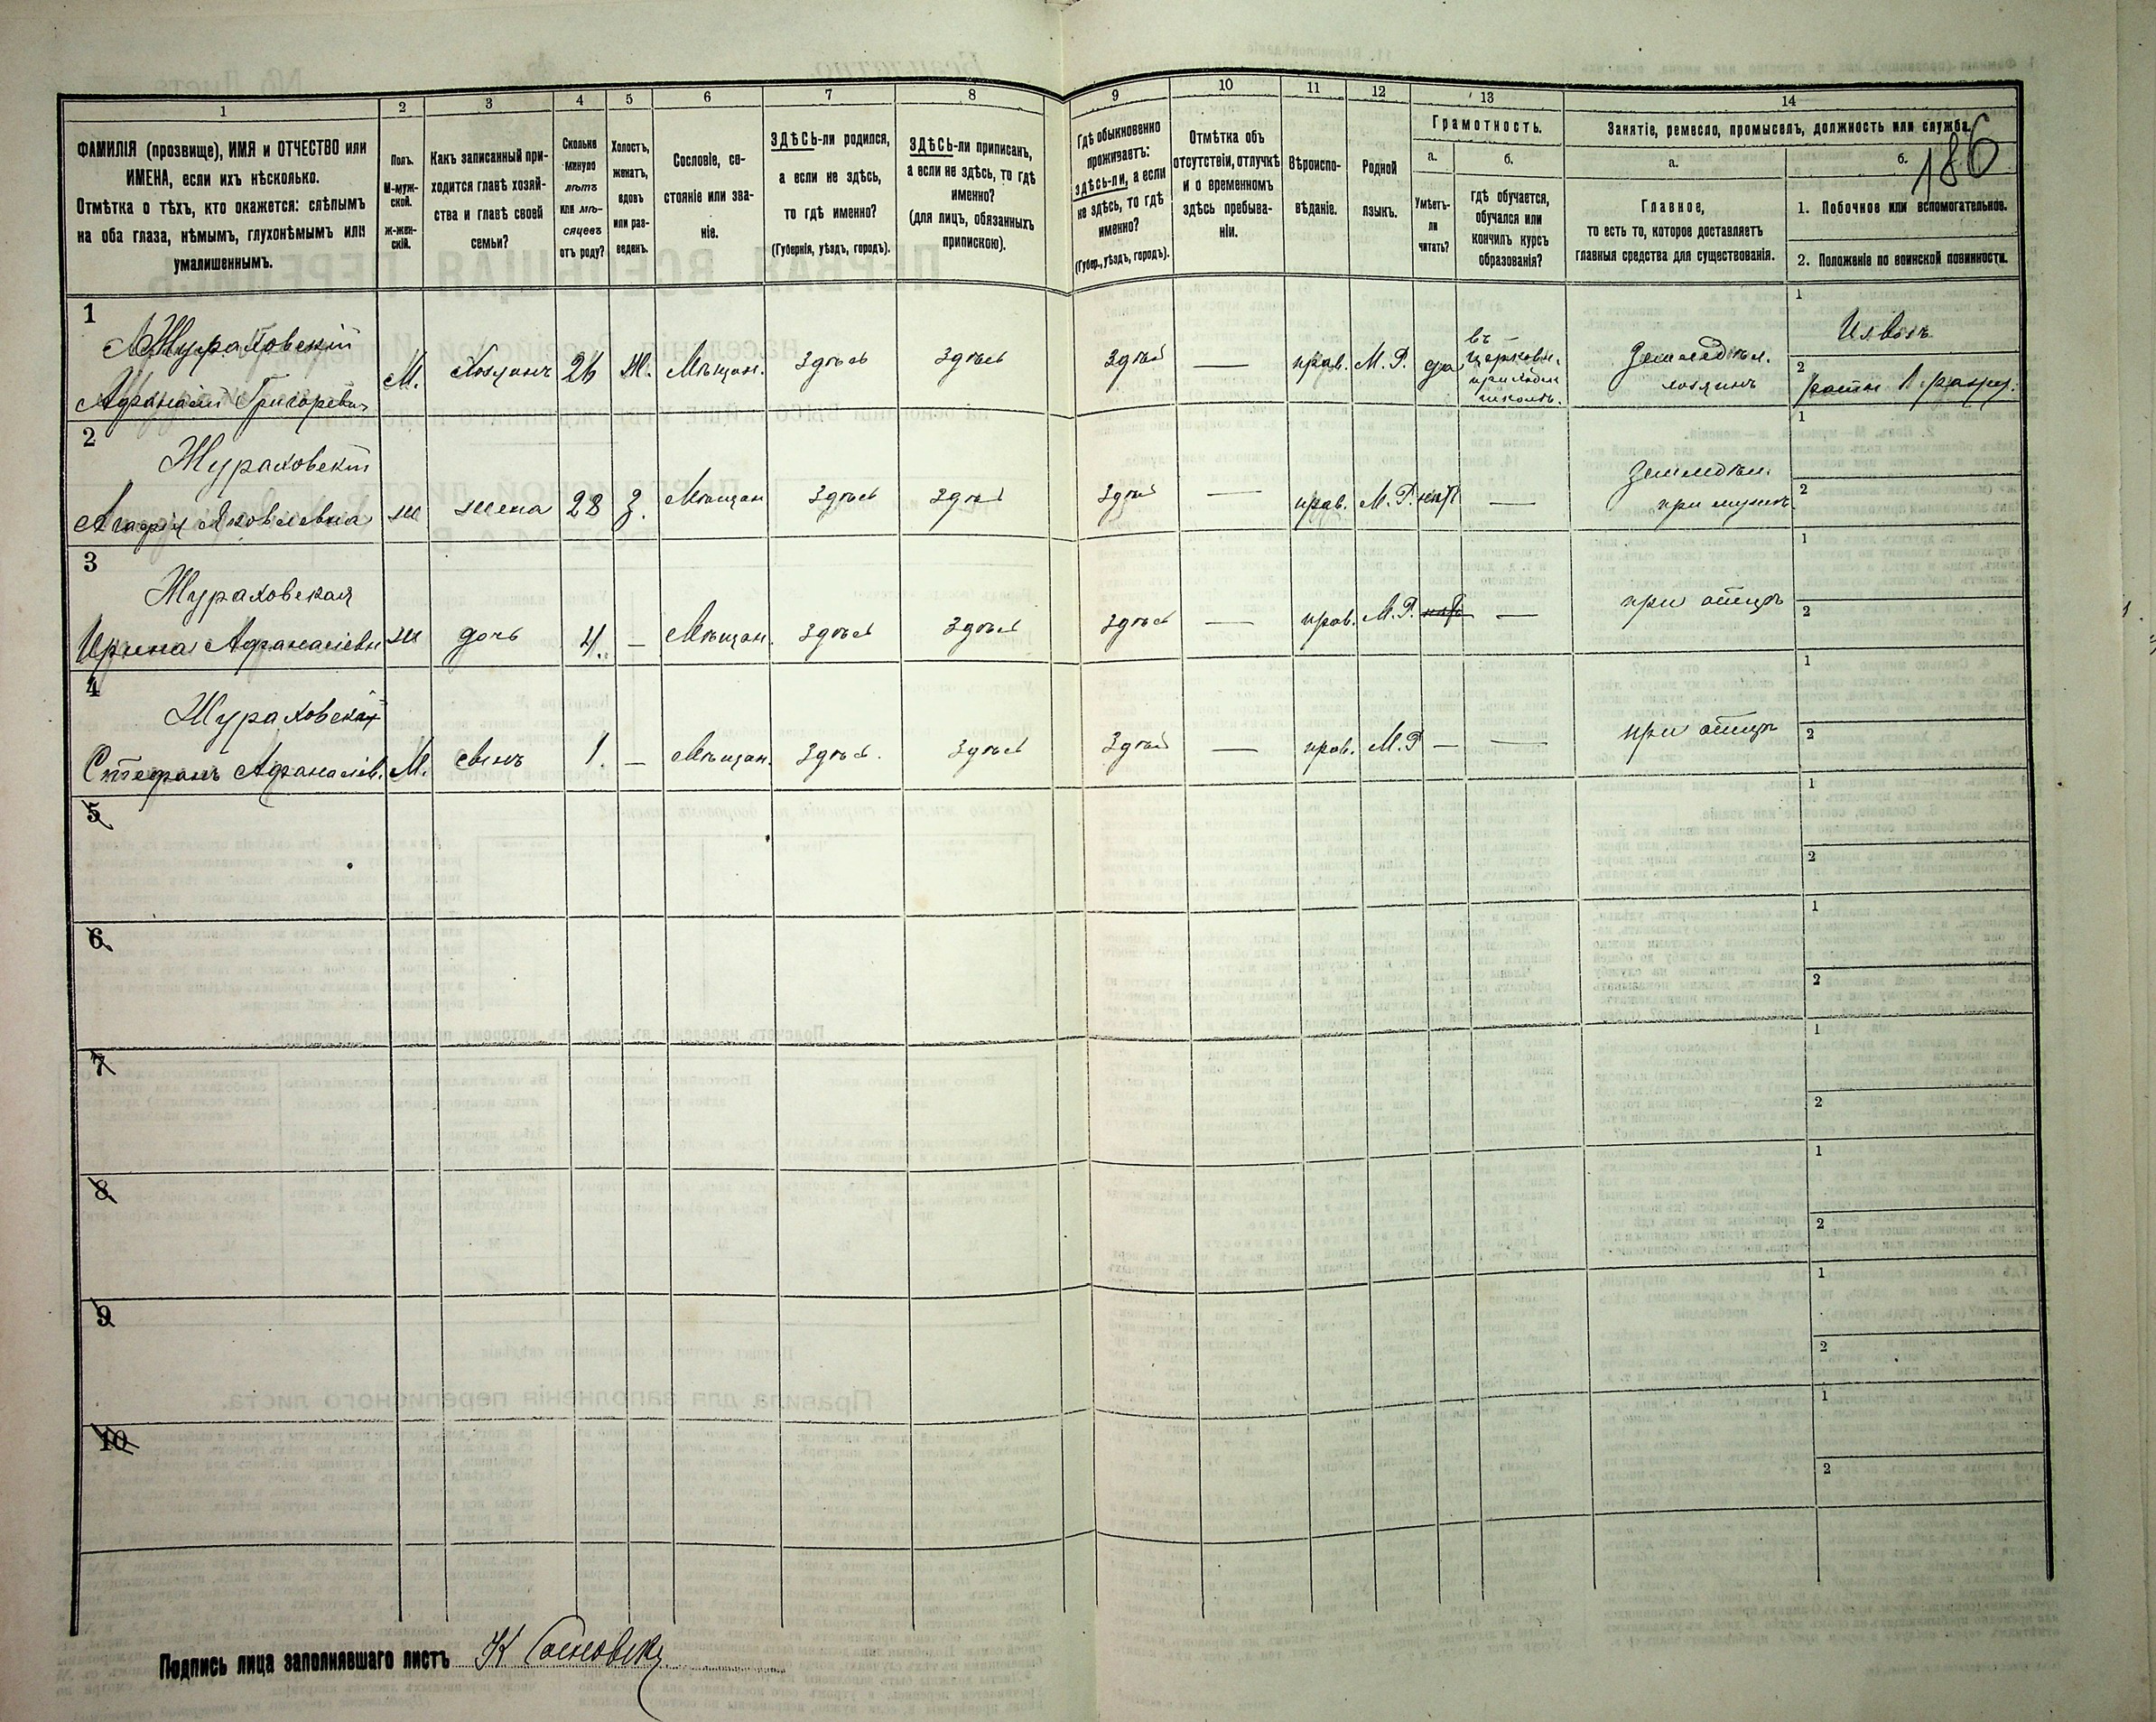 186
1
2
3
4
5
6
7
8
9
10
11
12
13
14
ФАМИЛІЯ (прозвище), ИМЯ и ОТЧЕСТВО или
ИМЕНА, если ихъ нѣсколько.
Отмѣтка о тѣхъ, кто окажется: слѣпымъ
на оба глаза, нѣмымъ, глухонѣмымъ или
умалишеннымъ.
Полъ.
М-муж-
ской.
Ж-жен-
скій.
Какъ записанный при-
ходится главѣ хозяй-
ства и главѣ своей
семьи?
Сколько
минуло
лѣтъ
или мѣ-
сяцевъ
отъ роду?
Холостъ,
женатъ,
вдовъ
или раз-
веденъ.
Сословіе, со-
стояніе или зва-
ніе.
ЗДѢСЬ-ли родился,
а если не здѣсь,
то гдѣ именно?
(Губернія, уѣздъ, городъ).
ЗДѢСЬ-ли приписанъ,
а если не здѣсь, то гдѣ
именно?
(для лицъ, обязанныхъ
припискою).
Гдѣ обыкновенно
проживаетъ:
здѣсь-ли, а если
не здѣсь, то гдѣ
именно?
(Губер., уѣздъ, городъ).
Отмѣтка объ
отсутствіи, отлучкѣ
и о временномъ
здѣсь пребыва-
ніи.
Вѣроиспо-
вѣданіе.
Родной
языкъ.
Грамотность.
а.
Умѣетъ-
ли
читать?
б.
гдѣ обучается,
обучался или
кончилъ курсъ
образованія?
Занятіе, ремесло, промыселъ, должность или служба.
а.
Главное,
то есть то, которое доставляетъ
главныя средства для существованія.
б.
1. Побочное или вспомогательное.
2. Положеніе по воинской повинности.
1
Жураховскій
Афанасій Григоревич
М. Хозяинъ 26 Ж. Мѣщан. Здѣсь Здѣсь Здѣсь — прав. М. Р. да
въ
церковн.
приходск
школѣ.
Земледѣл.
хозяинъ
1
Извозъ
2
ратн. 1 разр.
2
Жураховскій
Яковлевна ж жена 28 З. Мѣщан Здѣсь Здѣсь Здѣсь — прав. М. Р. нѣтъ —
Земледѣл.
при мужѣ.
1
2
3
Жураховская
Ирина Афанасіевн ж дочь 4. — Мѣщан. Здѣсь Здѣсь Здѣсь — прав. М. Р. нѣтъ — при отцѣ
1
2
4
Жураховскій
Стефанъ Афанасіев. М. сынъ 1. — Мѣщан. Здѣсь. Здѣсь Здѣсь — прав. М. Р — — при отцѣ
1
2
5
1
2
6
1
2
7
1
2
8
1
2
9
1
2
10
1
2
Подпись лица заполнявшаго листъ